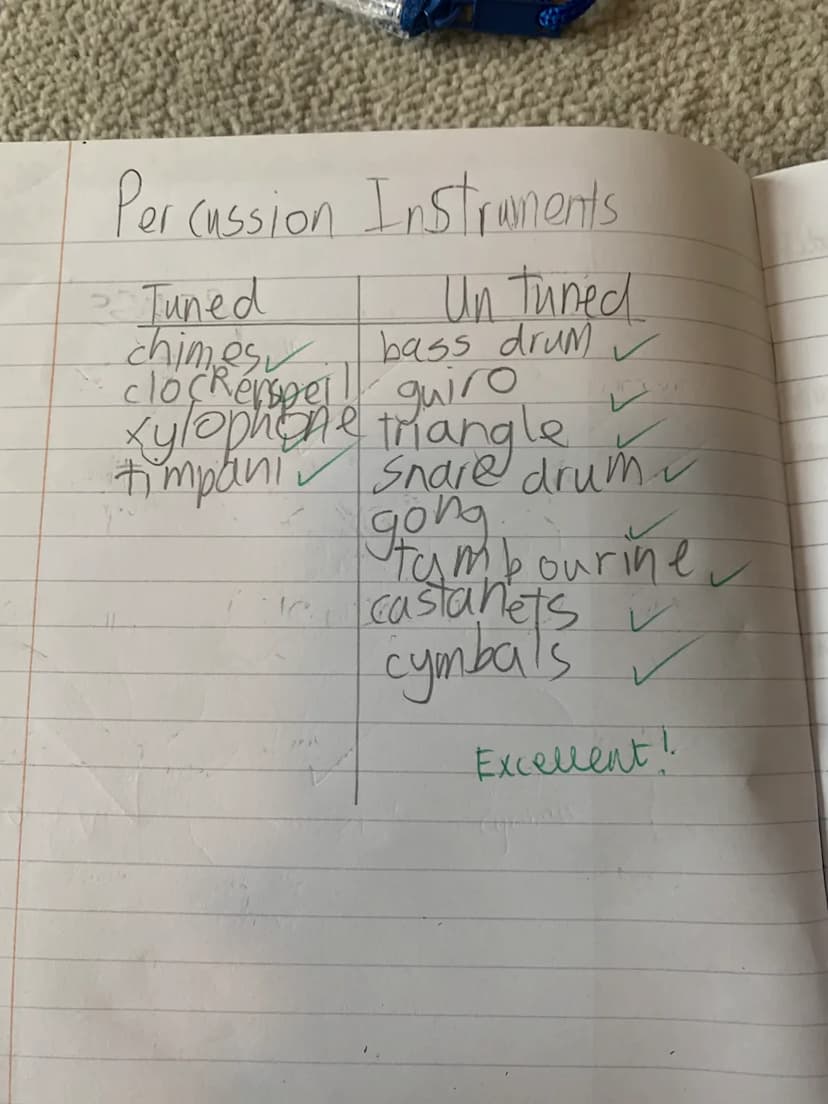 Percussion Instruments
Tuned
chimes
clockenspeil
xylophone
timpani
Untuned
bass drum
guiro
triangle
snare drum
gong
tambourine
castanets
cymbals
Excellent!